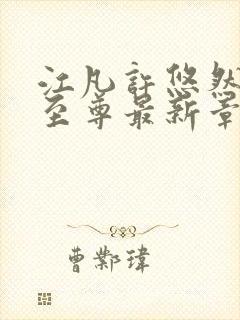 江凡許悠然
至尊最新章
曹鄴瑋